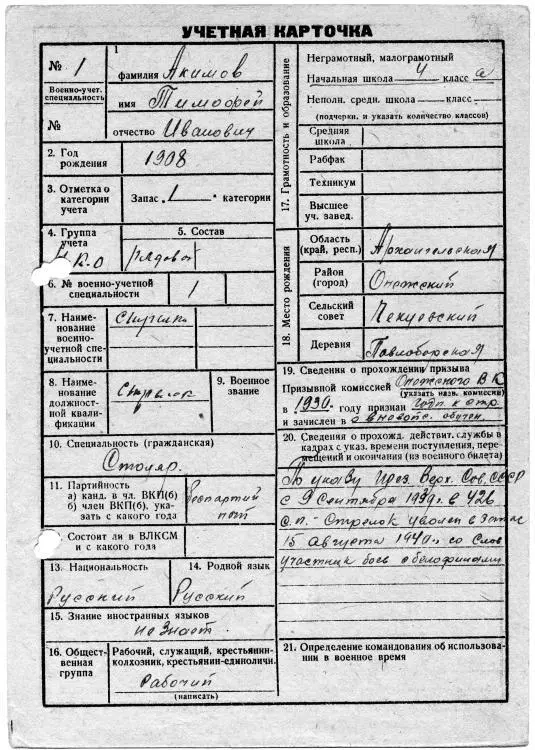 УЧЕТНАЯ КАРТОЧКА
№ 1
Военно-учет. специальность
№
1
фамилия Акимов
имя Тимофей
отчество Иванович
2. Год рождения 1908
3. Отметка о категории учета
Запас 1 категории
4. Группа учета
К.О
5. Состав
рядовой
6. № военно-учетной специальности 1
7. Наименование военно-учетной специальности
8. Наименование должностной квалификации
Стрелок
9. Военное звание
10. Специальность (гражданская)
Столяр.
11. Партийность
а) канд. в чл. ВКП(б)
б) член ВКП(б), указать с какого года
Беспартийный
Состоит ли в ВЛКСМ и с какого года
13. Национальность
Русский
14. Родной язык
Русский
15. Знание иностранных языков
не знает.
16. Общественная группа
Рабочий, служащий, крестьянин-колхозник, крестьянин-единоличн.
Рабочий
(написать)
17. Грамотность и образование
Неграмотный, малограмотный
Начальная школа 4 класса
Неполн. средн. школа класс
(подчеркн. и указать количество классов)
Средняя школа
Рабфак
Техникум
Высшее уч. завед.
18. Место рождения
Область (край, респ.) Архангельская
Район (город) Онежский
Сельский совет Чекуевский
Деревня Павлоборская
19. Сведения о прохождении призыва
Призывной комиссией Онежского В К
(указать назв. комиссии)
в 1930. году признан годн. к стр.
и зачислен в вневойс. обучен.
20. Сведения о прохожд. действит. службы в кадрах с указ. времени поступления, перемещений и окончания (из военного билета)
По указу През. Верх. Сов. СССР
с 9 Сентября 1939г. в 426
с.п. - Стрелок уволен в запас
15 августа 1940г. со слов
участник боев с белофинами
21. Определение командования об использовании в военное время